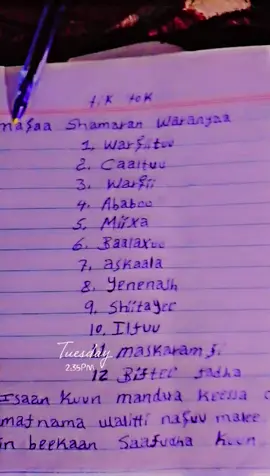 tik tok
maqaa Shamaran Waranyaa
1. Warqituu
2. Caaltuu
3. Warqii
4. Ababoo
5. Miixa
6. Baalaxuu
7. askaala
8. Yenenash
9. Shitayee
10. Iftuu
11 maskaram fi
12 Biftee fadha
Tuesday
2:35PM
Isaan Kuun mandua Keessa
matnama walitti naquu malee
in beekaan Saafudha Kuun